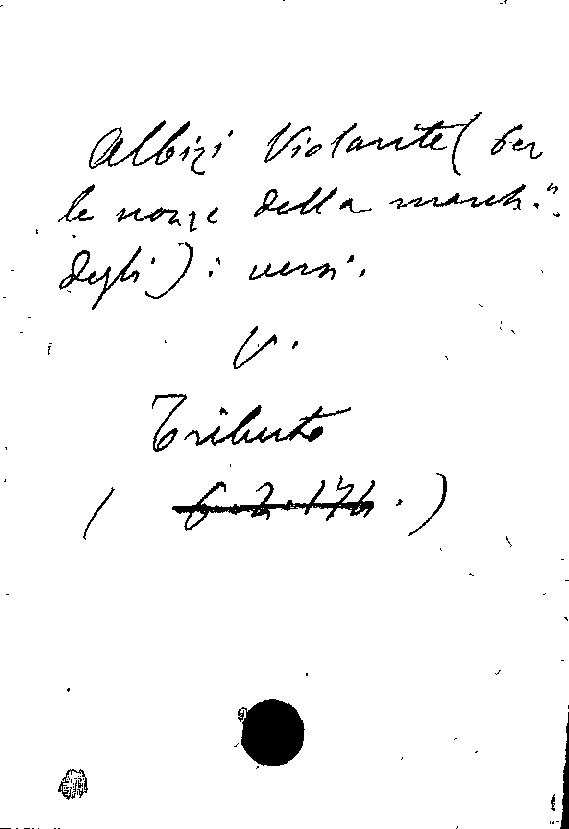 Albizi Violante (per
le nozze della march.ª
degli): versi.
V.
Tributo
( 6.2.174. )